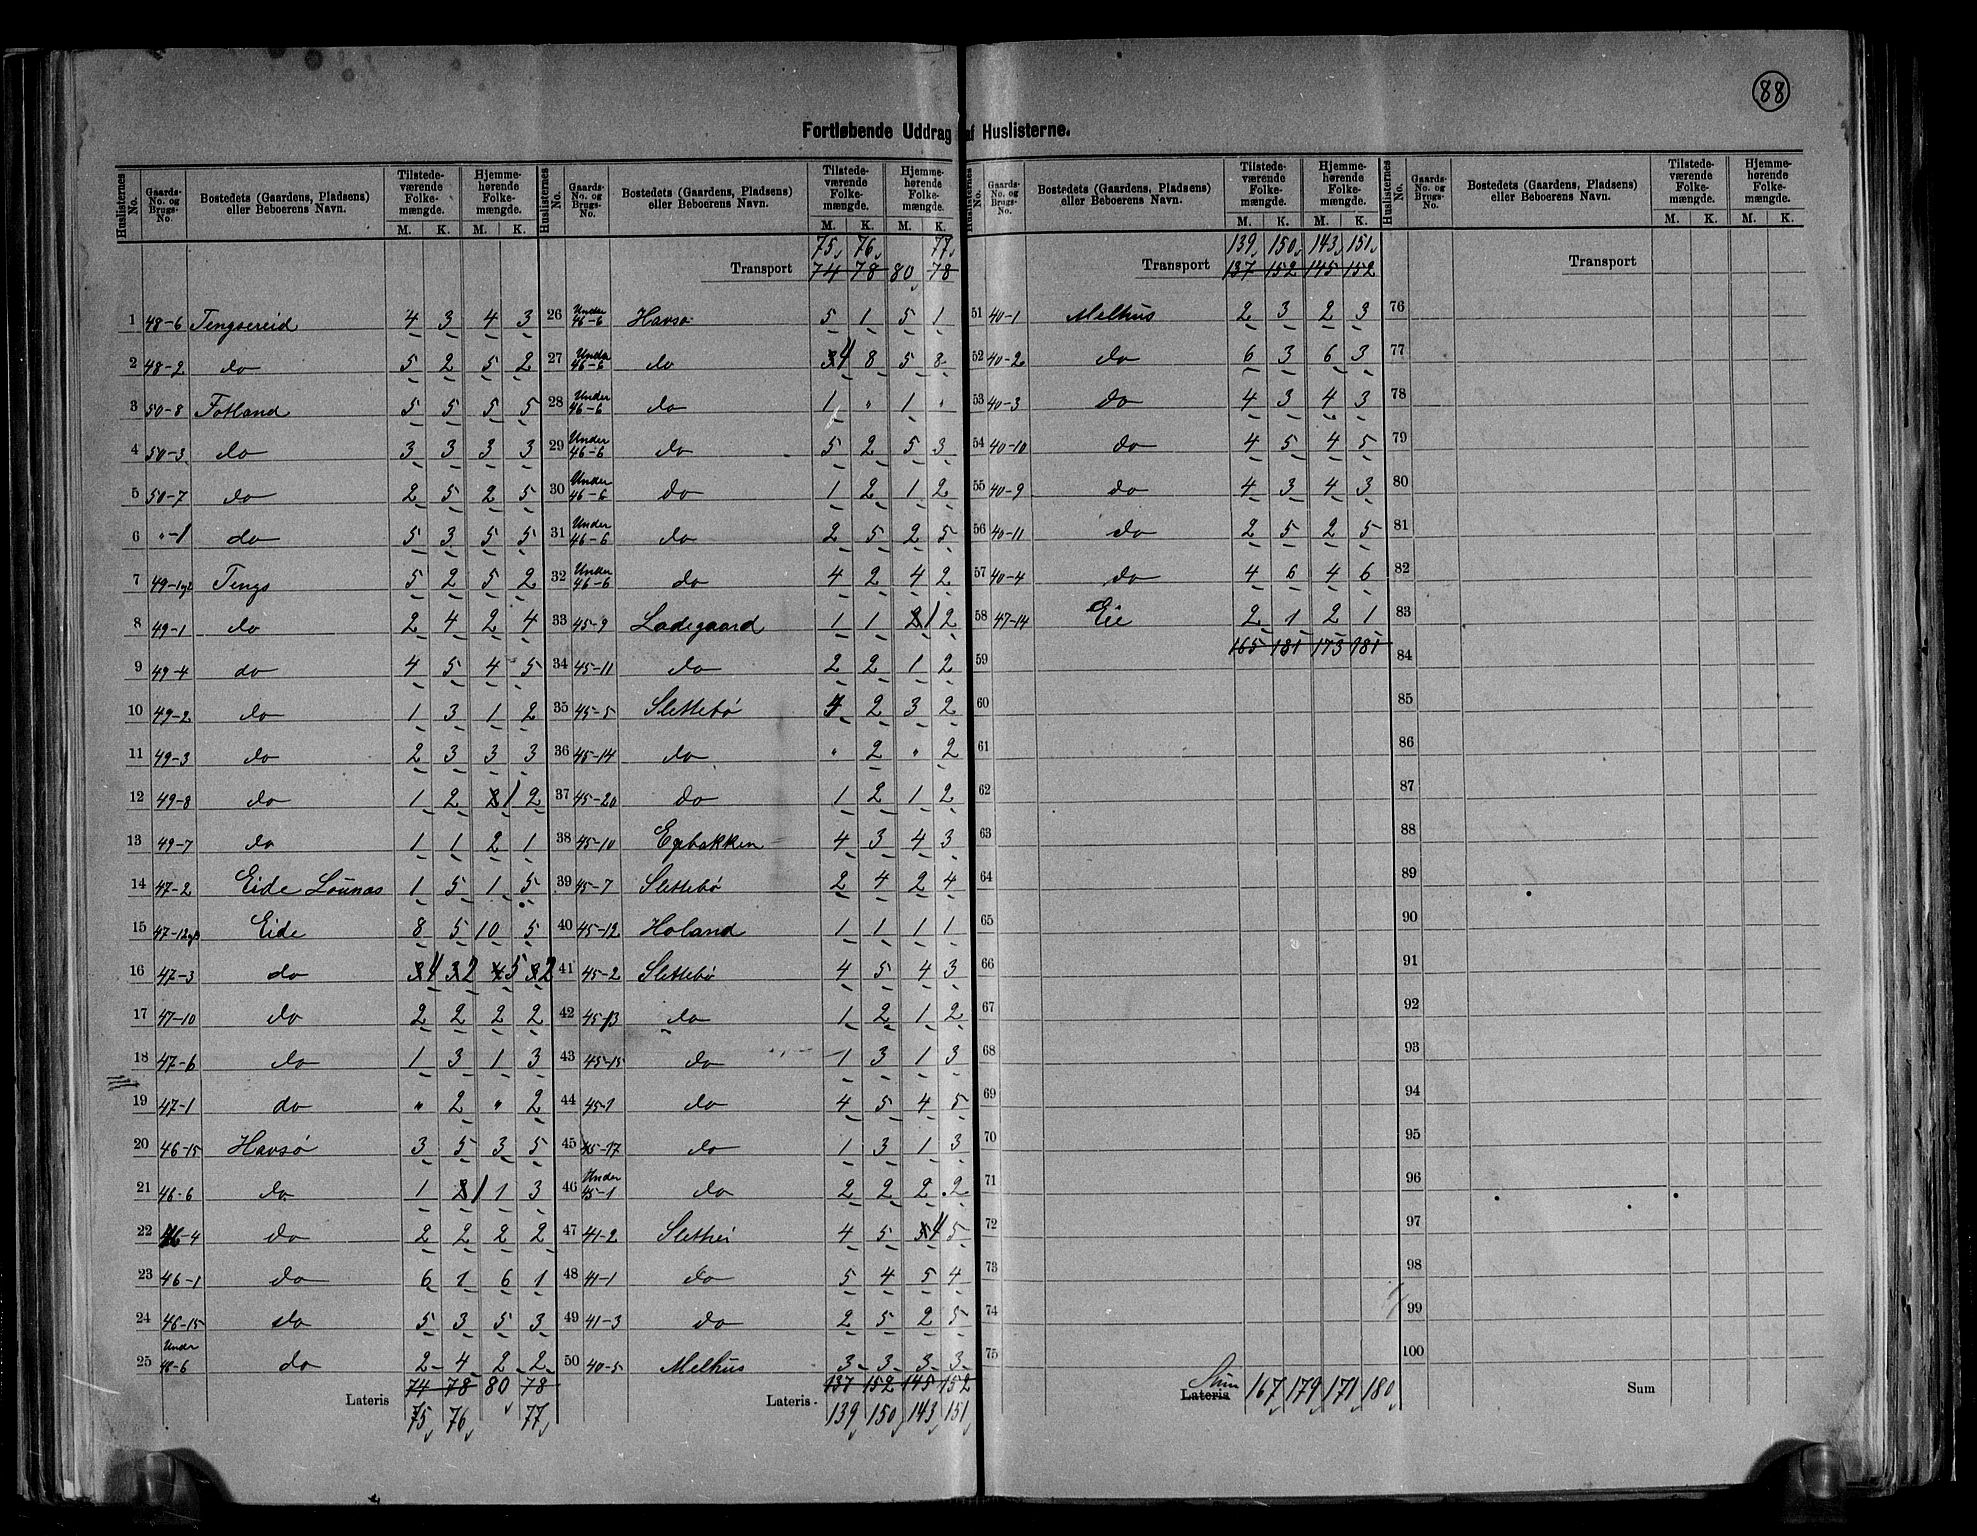 88
Fortløbende Uddrag af Huslisterne.
Huslisternes No. Gaards-No. og Brugs-No. Bostedets (Gaardens, Pladsens) eller Beboerens Navn. Tilstedeværende Folkemængde. M. K. Hjemmehørende Folkemængde. M. K.
1 48-6 Tengsereid 4 3 4 3
2 48-2 do 5 2 5 2
3 50-8 Fotland 5 5 5 5
4 50-3 do 3 3 3 3
5 50-7 do 2 5 2 5
6 "-1 do 5 3 5 5
7 49-1 Tengs 5 2 5 2
8 49-1 do 2 4 2 4
9 49-4 do 4 5 4 5
10 49-2 do 1 3 1 2
11 49-3 do 2 3 3 3
12 49-8 do 1 2 1 2
13 49-7 do 1 1 2 1
14 47-2 Eide Lounas 1 5 1 5
15 47-12 Eide 8 5 10 5
16 47-3 do 3 4 3 2 4 5 3 2
17 47-10 do 2 2 2 2
18 47-6 do 1 3 1 3
19 47-1 do " 2 " 2
20 46-15 Havsø 3 5 3 5
21 46-6 do 1 1 1 3
22 46-4 do 2 2 2 2
23 46-1 do 6 1 6 1
24 46-15 do 5 3 5 3
25 Under 48-6 do 2 4 2 2
74 78 80 78
Lateris 75 76 77
Huslisternes No. Gaards-No. og Brugs-No. Bostedets (Gaardens, Pladsens) eller Beboerens Navn. Tilstedeværende Folkemængde. M. K. Hjemmehørende Folkemængde. M. K.
75 76 77
Transport 74 78 80 78
26 Under 46-6 Havsø 5 1 5 1
27 Under 46-6 do 3 4 8 5 8
28 Under 46-6 do 1 " 1 "
29 Under 46-6 do 5 2 5 3
30 Under 46-6 do 1 2 1 2
31 Under 46-6 do 2 5 2 5
32 Under 46-6 do 4 2 4 2
33 45-9 Ladegaard 1 1 2 1 2
34 45-11 do 2 2 1 2
35 45-5 Slettebø 4 2 3 2
36 45-14 do " 2 " 2
37 45-20 do 1 2 1 2
38 45-10 Egebakken 4 3 4 3
39 45-7 Slettebø 2 4 2 4
40 45-12 Holand 1 1 1 1
41 45-2 Slettebø 4 5 4 3
42 45-13 do 1 2 1 2
43 45-15 do 1 3 1 3
44 45-1 do 4 5 4 5
45 45-17 do 1 3 1 3
46 Under 45-1 do 2 2 2 2
47 41-2 4 5 5 4 5
48 41-1 do 5 4 5 4
49 41-3 do 2 5 2 5
50 40-5 Melhus 3 3 3 3
137 152 145 152
Lateris 139 150 143 151
Huslisternes No. Gaards-No. og Brugs-No. Bostedets (Gaardens, Pladsens) eller Beboerens Navn. Tilstedeværende Folkemængde. M. K. Hjemmehørende Folkemængde. M. K.
139 150 143 151
Transport 137 152 145 152
51 40-1 Melhus 2 3 2 3
52 40-2 do 6 3 6 3
53 40-3 do 4 3 4 3
54 40-10 do 4 5 4 5
55 40-9 do 4 3 4 3
56 40-11 do 2 5 2 5
57 40-4 do 4 6 4 6
58 47-14 Eie 2 1 2 1
165 181 173 181
59
60
61
62
63
64
65
66
67
68
69
70
71
72
73
74
75
Sum
Lateris 167 179 171 180
Huslisternes No. Gaards-No. og Brugs-No. Bostedets (Gaardens, Pladsens) eller Beboerens Navn. Tilstedeværende Folkemængde. M. K. Hjemmehørende Folkemængde. M. K.
Transport
76
77
78
79
80
81
82
83
84
85
86
87
88
89
90
91
92
93
94
95
96
97
98
99
100
Sum